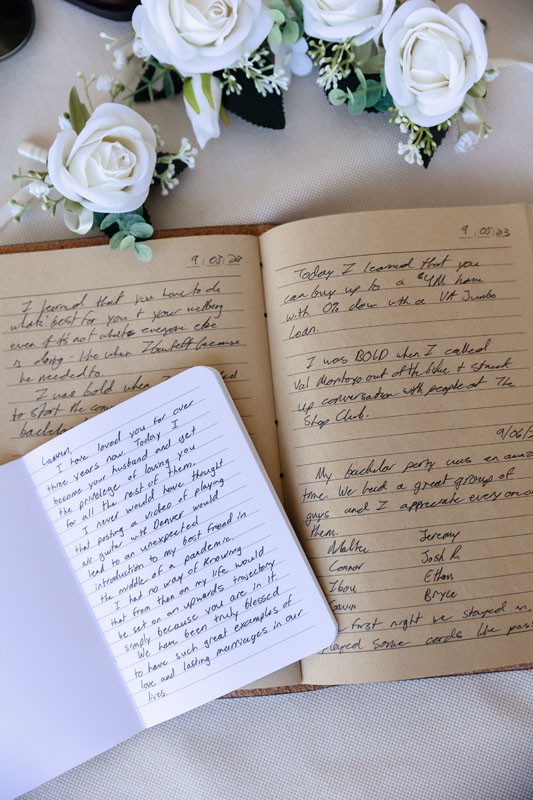 9/03/23
I learned that you have to do
what's best for you + your wellbeing
even if it's not what everyone else
is doing - like when I because
he needed to.
I was bold when
to start the
bachelor
9/05/23
Today I learned that you
can buy up to a $4M home
with 0% down with a VA Jumbo
loan.
I was BOLD when I called
Val Montoya out of the blue + struck
up conversation with people at The
Shop Club.
9/06/2
My bachelor party was an amaz
time. We had a great group of
guys and I appreciate everyone
them.
Jeremy
Connor Josh R.
Ibou Ethan
Gavin Bryce
first night we stayed in
played some cards like
Lauren,
I have loved you for over
three years now. Today I
become your husband and get
the privelege of loving you
for all the rest of them.
I never would have thought
that posting a video of playing
air guitar with Denver would
lead to an unexpected
introduction to my best friend in
the middle of a pandemic.
I had no way of knowing
that from then on my life would
be set on an upwards trajectory
simply because you are in it.
We have been truly blessed
to have such great examples of
love and lasting marriages in our
lives.